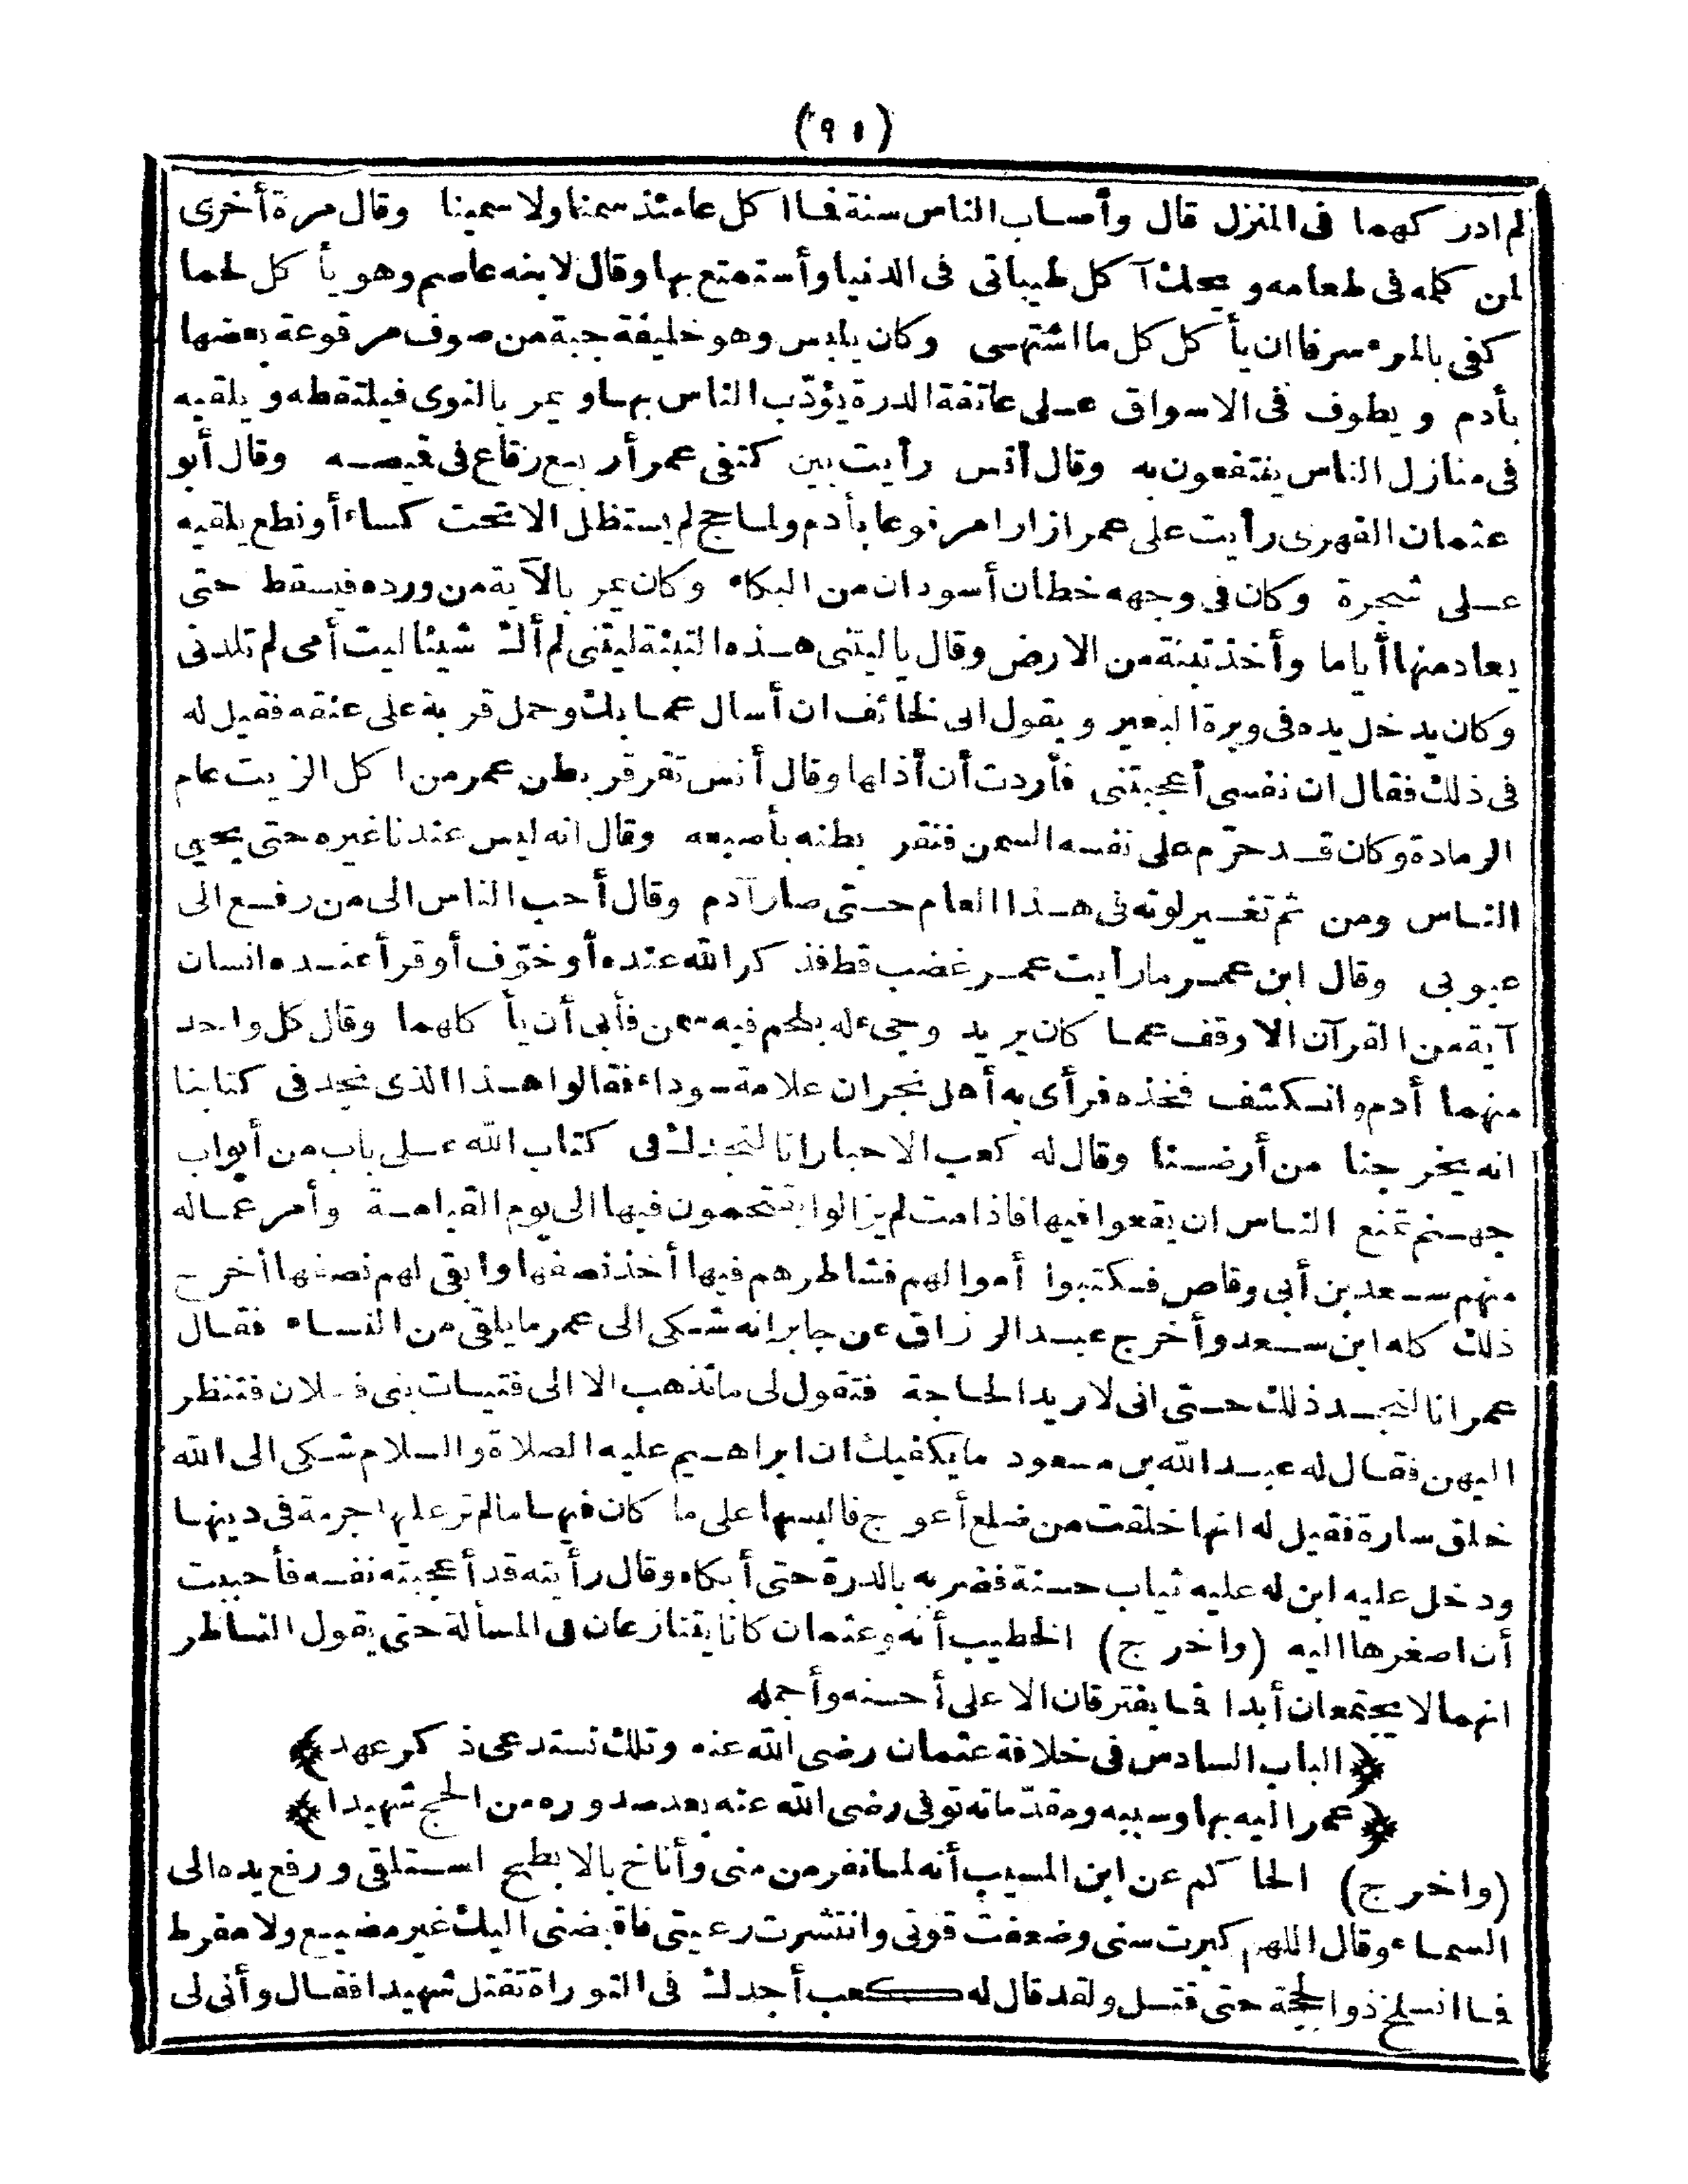 (٩١)
لم ادركهما فى المنزل قال وأصاب الناس سنة فما اكل عامئذ سمنا ولا سمينا وقال مرة أخرى
لمن كلمه فى طعامه ويحك آكل طيباتى فى الدنيا وأستمتع بها وقال لابنه عاصم وهو يأكل لحما
كفى بالمرء سرفا ان يأكل كل ما اشتهى وكان يلبس وهو خليفة جبة من صوف مرقوعة بعضها
بأدم ويطوف فى الاسواق على عاتقة الدرة يؤدّب الناس بها ويمر بالنوى فيلتقطه ويلقيه
فى منازل الناس ينتفعون به وقال أنس رأيت بين كتفى عمر أربع رقاع فى قميصه وقال أبو
عثمان القهرى رأيت على عمر ازارا مرقوعا بأدم ولما حج لم يستظل الا تحت كساء أو نطع يلقيه
على شجرة وكان فى وجهه خطان أسودان من البكاء وكان يمر بالآية من ورده فيسقط حتى
يعاد منها أياما وأخذ تبنة من الارض وقال يا ليتنى هذه التبنة ليتنى لم أك شيئا ليت أمى لم تلدنى
وكان يدخل يده فى وبرة البعير ويقول انى لخائف ان أسال عما بك وحمل قربة على عنقه فقيل له
فى ذلك فقال ان نفسى أعجبتنى فأردت أن أذلها وقال أنس تقرقر بطن عمر من اكل الزيت عام
الرمادة وكان قد حرّم على نفسه السمن فنقر بطنه بأصبعه وقال انه ليس عندنا غيره حتى يحيى
الناس ومن ثم تغير لونه فى هذا العام حتى صار آدم وقال أحب الناس الى من رفع الى
عيوبى وقال ابن عمر ما رأيت عمر غضب قط فذكر الله عنده أو خوّف أو قرأ عنده انسان
آية من القرآن الا وقف عما كان يريد وجىء له بلحم فيه سمن فأبى أن يأكلهما وقال كل واحد
منهما أدم وانكشف فخذه فرأى به أهل نجران علامة سوداء فقالوا هذا الذى نجد فى كتابنا
انه يخرجنا من أرضنا وقال له كعب الاحبار انا لنجدك فى كتاب الله على باب من أبواب
جهنم تمنع الناس ان يقعوا فيها فاذا مت لم يزالوا يقتحمون فيها الى يوم القيامة وأمر عماله
منهم سعد بن أبى وقاص فكتبوا أموالهم فشاطرهم فيها أخذ نصفها وابقى لهم نصفها أخرج
ذلك كله ابن سعد وأخرج عبد الرزاق عن جابر انه شكى الى عمر ما يلقى من النساء فقال
عمر انا لنجد ذلك حتى انى لاريد الحاجة فتقول لى ما تذهب الا الى فتيات بنى فلان فتنظر
اليهن فقال له عبد الله بن مسعود ما يكفيك ان ابراهيم عليه الصلاة والسلام شكى الى الله
خلق سارة فقيل له انها خلقت من ضلع أعوج فالبسها على ما كان فيها ما لم تر عليها جرمة فى دينها
ودخل عليه ابن له عليه ثياب حسنة فضربه بالدرة حتى أبكاه وقال رأيته قد أعجبته نفسه فأحببت
أن اصغرها اليه (واخرج) الخطيب أنه وعثمان كانا يتنازعان فى المسألة حتى يقول الناظر
انهما لا يجتمعان أبدا فما يفترقان الا على أحسنه وأجمله
﴿الباب السادس فى خلافة عثمان رضى الله عنه وتلك تستدعى ذكر عهد﴾
﴿عمر اليه بها وسببه ومقدّماته توفى رضى الله عنه بعد صدوره من الحج شهيدا﴾
(واخرج) الحاكم عن ابن المسيب أنه لما نفر من منى وأناخ بالابطح استلقى ورفع يده الى
السماء وقال اللهم كبرت سنى وضعفت قوتى وانتشرت رعيتى فاقبضنى اليك غير مضيع ولا مفرط
فما انسلخ ذوالحجة حتى قتل ولقد قال له كعب أجدك فى التوراة تقتل شهيدا فقال وأنى لى